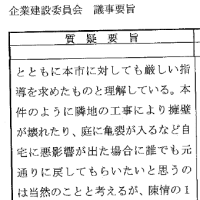 企業建設委員会　議事要旨
質疑要旨
とともに本市に対しても厳しい指
導を求めたものと理解している。本
件のように隣地の工事により擁壁
が壊れたり、庭に亀裂が入るなど自
宅に悪影響が出た場合に誰でも元
通りに戻してもらいたいと思うの
は当然のことと考えるが、陳情の１